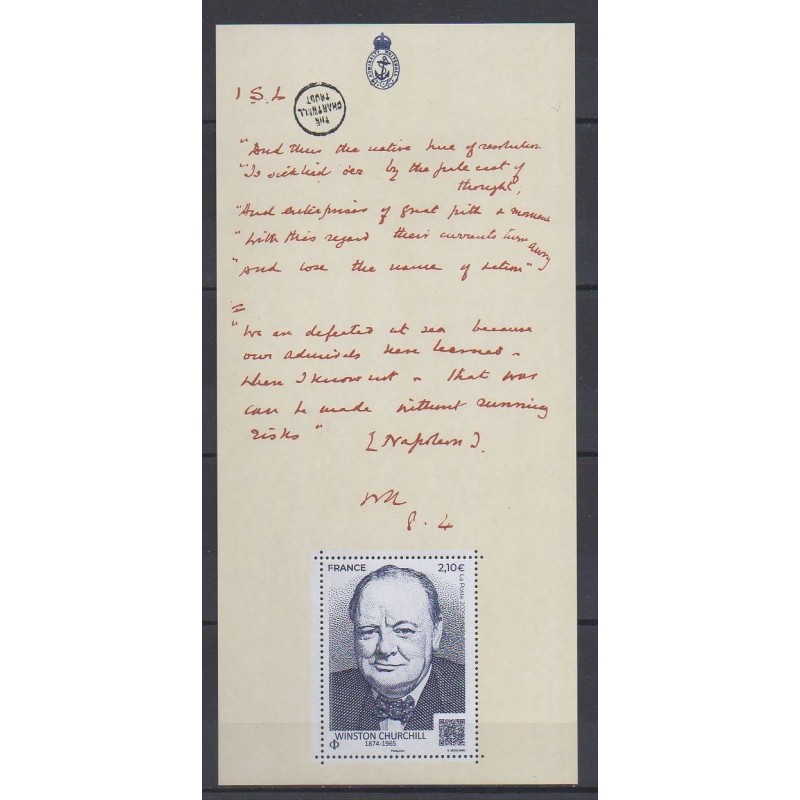 ADMIRALTY
1 S.L
THE
CHARTWELL
TRUST
"And thus the native hue of resolution
"Is sicklied o'er by the pale cast of
thought,
"And enterprises of great pith & moment
"With this regard their currents turn away
"And lose the name of Action"
"We are defeated at sea because
our Admirals have learned -
where I know not - that war
can be made without running
risks" [Napoleon].
8.4
FRANCE 2,10€
La Poste
WINSTON CHURCHILL
1874-1965